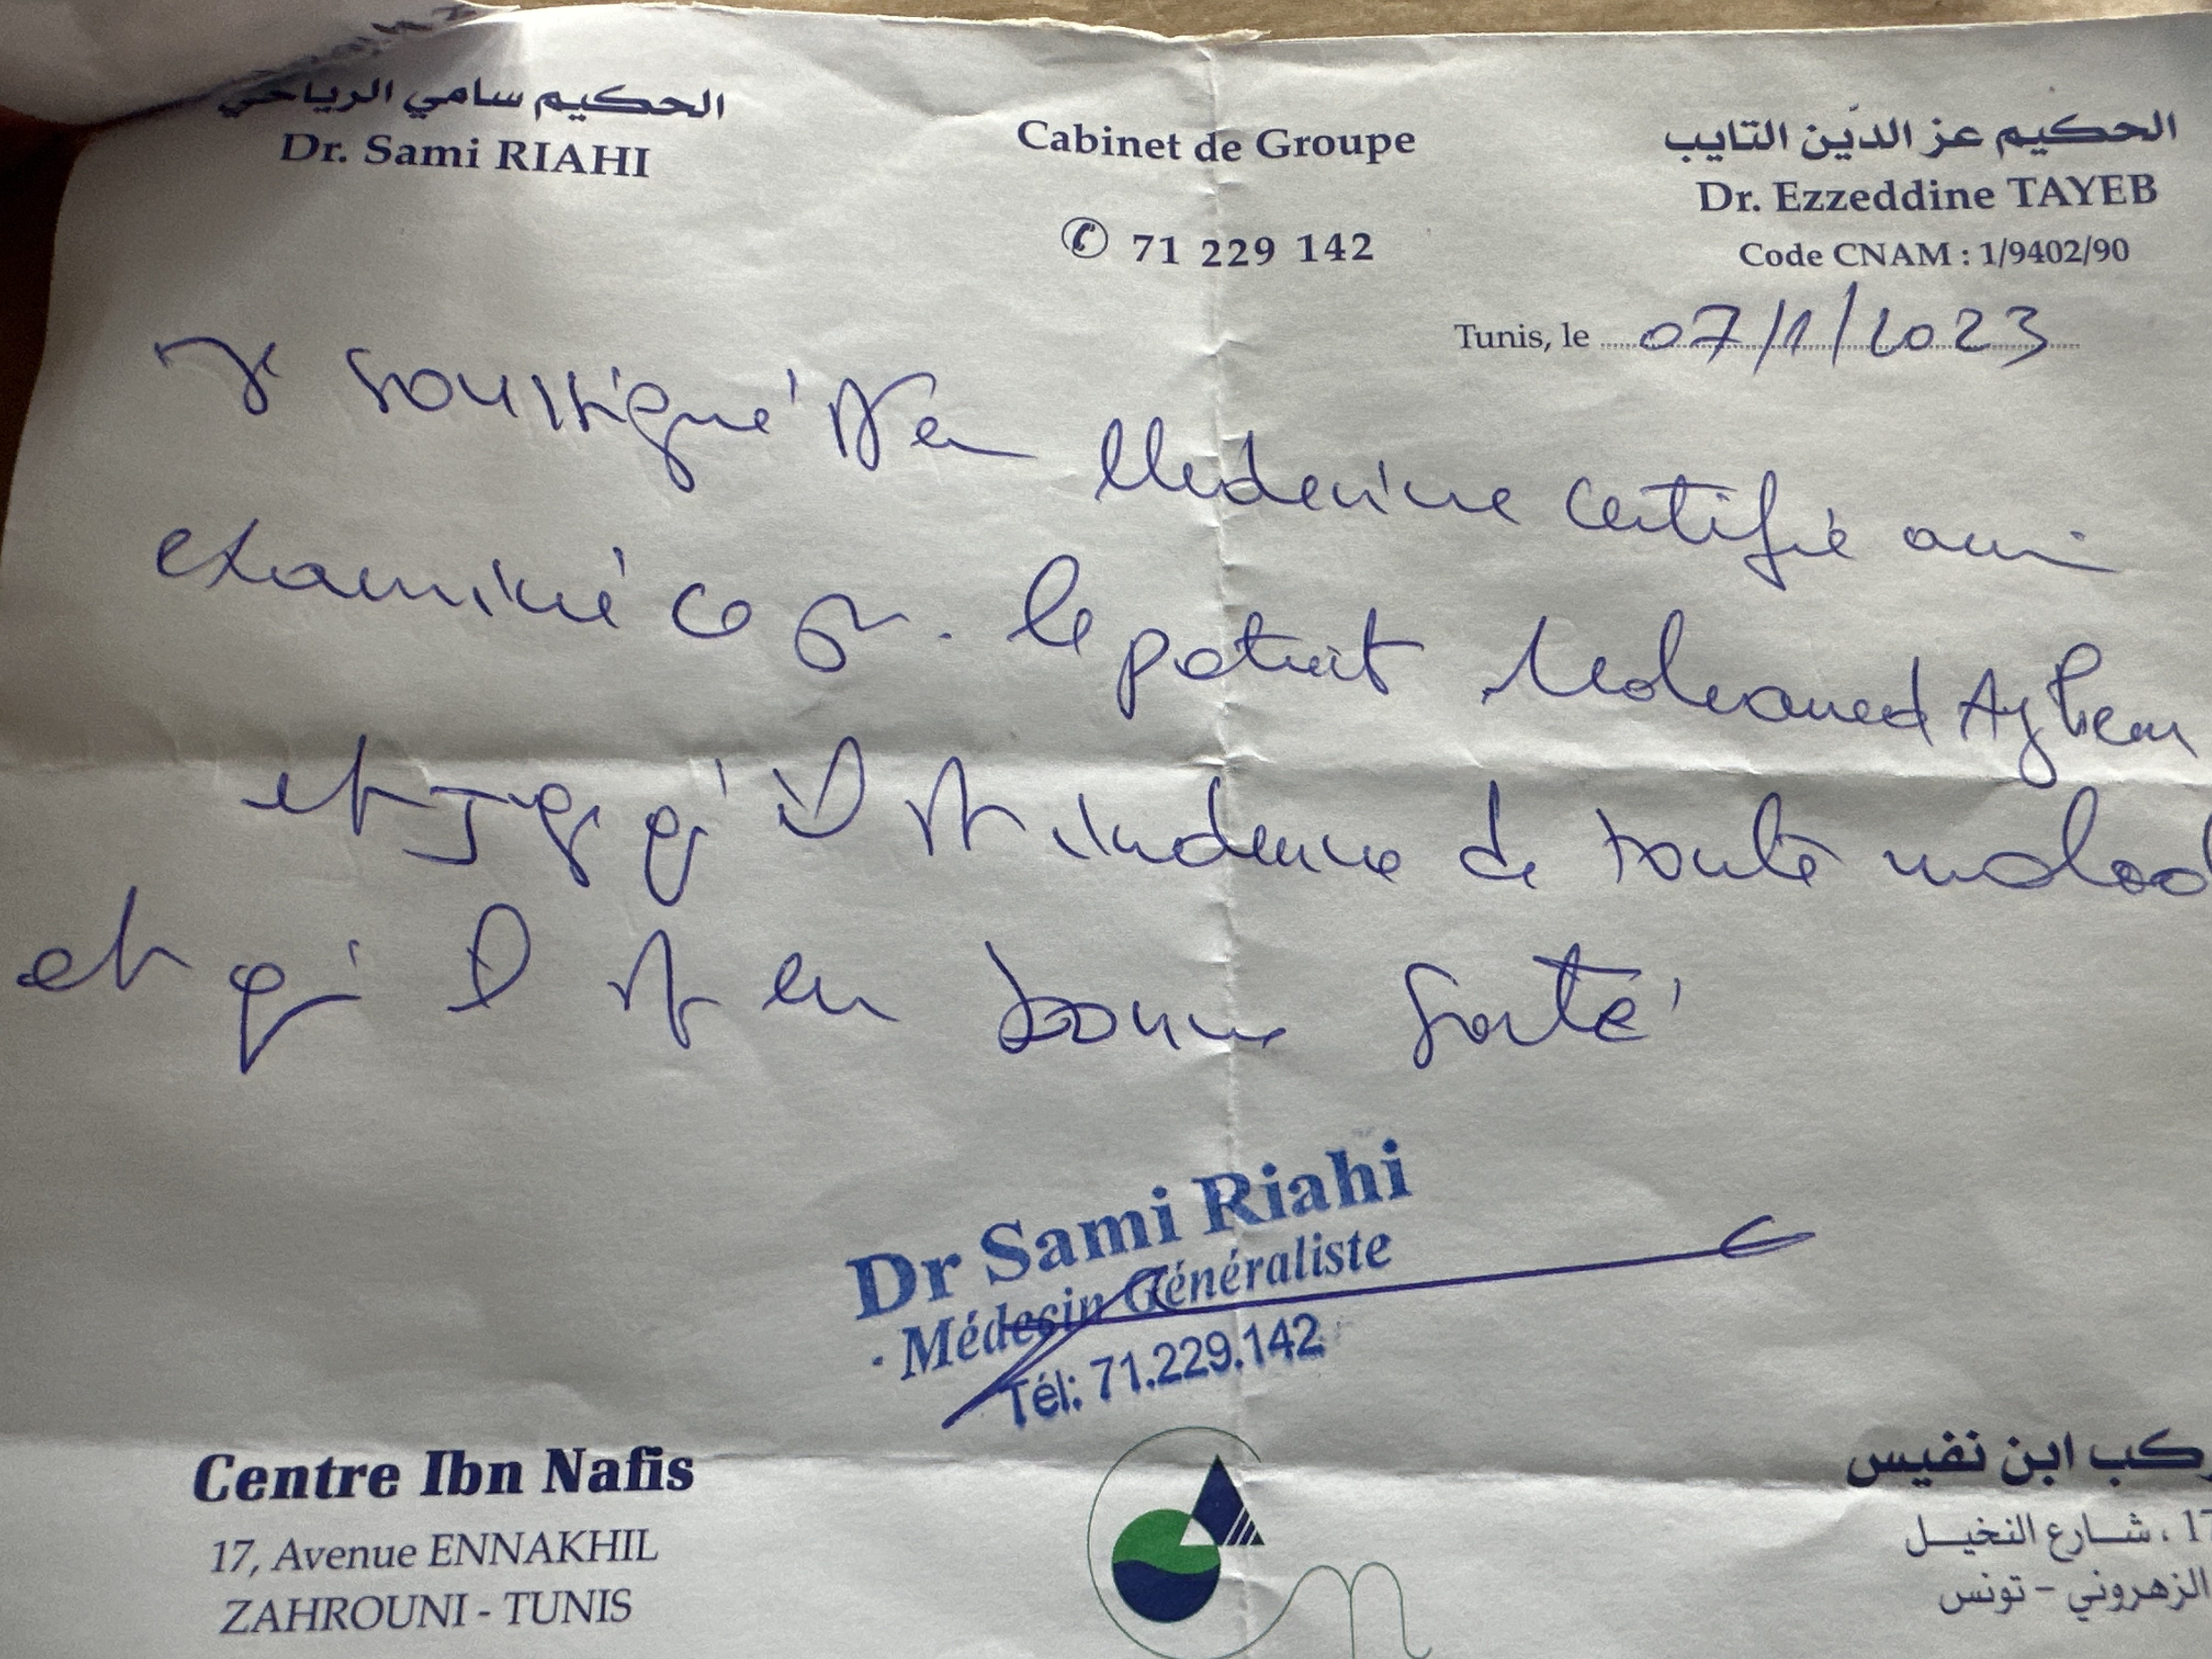 الحكيم سامي الرياحي
Dr. Sami RIAHI
Cabinet de Groupe
71 229 142
الحكيم عز الدّين التايب
Dr. Ezzeddine TAYEB
Code CNAM : 1/9402/90
Tunis, le 07/1/2023
Je soussigné Dr en Medecine certifie avoir
examiné ce jr. le patient Mohamed
et qu'il est indemne de toute malad
et qu'il est en bonne santé
Dr Sami Riahi
Médecin Généraliste
Tél: 71.229.142
Centre Ibn Nafis
17, Avenue ENNAKHIL
ZAHROUNI - TUNIS
ركب ابن نفيس
17 ، شارع النخيل
الزهروني - تونس